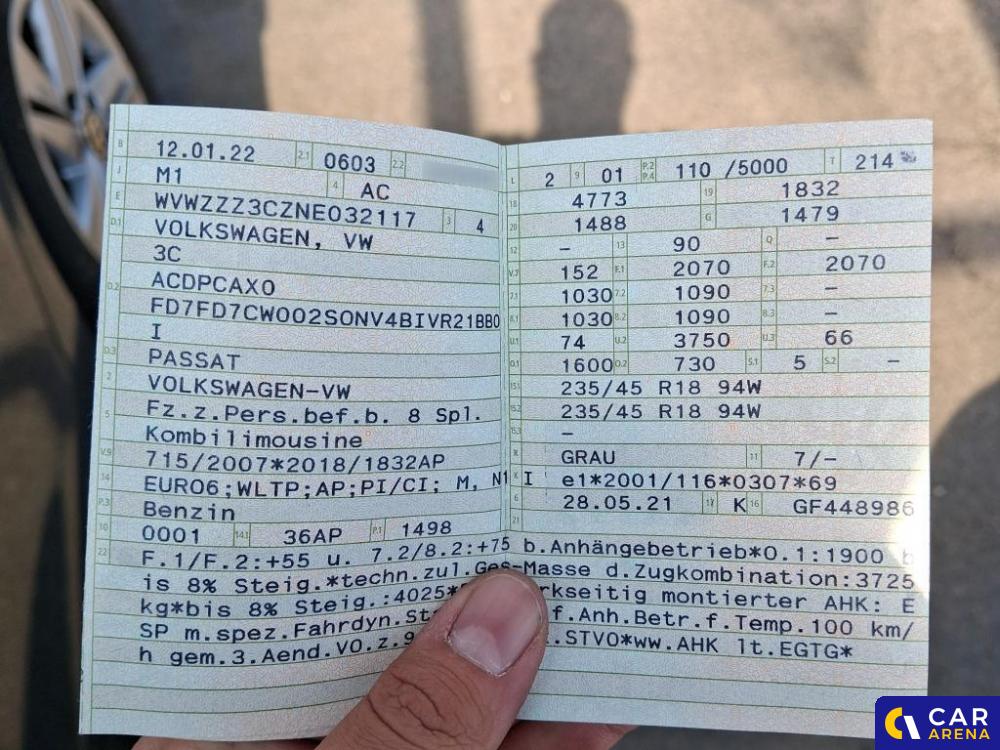 B 12.01.22 2.1 0603 2.2
J M1 4 AC
E WVWZZZ3CZNE032117 3 4
D.1 VOLKSWAGEN, VW
3C
D.2 ACDPCAX0
FD7FD7CW002SONV4BIVR21BB0
I
D.3 PASSAT
2 VOLKSWAGEN-VW
5 Fz.z.Pers.bef.b. 8 Spl.
Kombilimousine
V.9 715/2007*2018/1832AP
14 EURO6;WLTP;AP;PI/CI; M, N1 I
P.3 Benzin
10 0001 14.1 36AP P.1 1498
L 2 9 01 P.2 P.4 110 /5000 T 214
18 4773 19 1832
20 1488 G 1479
12 - 13 90 Q -
V.7 152 F.1 2070 F.2 2070
7.1 1030 7.2 1090 7.3 -
8.1 1030 8.2 1090 8.3 -
U.1 74 U.2 3750 U.3 66
O.1 1600 O.2 730 S.1 5 S.2 -
15.1 235/45 R18 94W
15.2 235/45 R18 94W
15.3 -
R GRAU 11 7/-
K e1*2001/116*0307*69
6 28.05.21 17 K 16 GF448986
21
22 F.1/F.2:+55 u. 7.2/8.2:+75 b.Anhängebetrieb*O.1:1900 b
is 8% Steig.*techn.zul.Ges-Masse d.Zugkombination:3725
kg*bis 8% Steig.:4025* rkseitig montierter AHK: E
SP m.spez.Fahrdyn.St f.Anh.Betr.f.Temp.100 km/
h gem.3.Aend.VO.z.9 .STVO*ww.AHK lt.EGTG*
CAR
ARENA